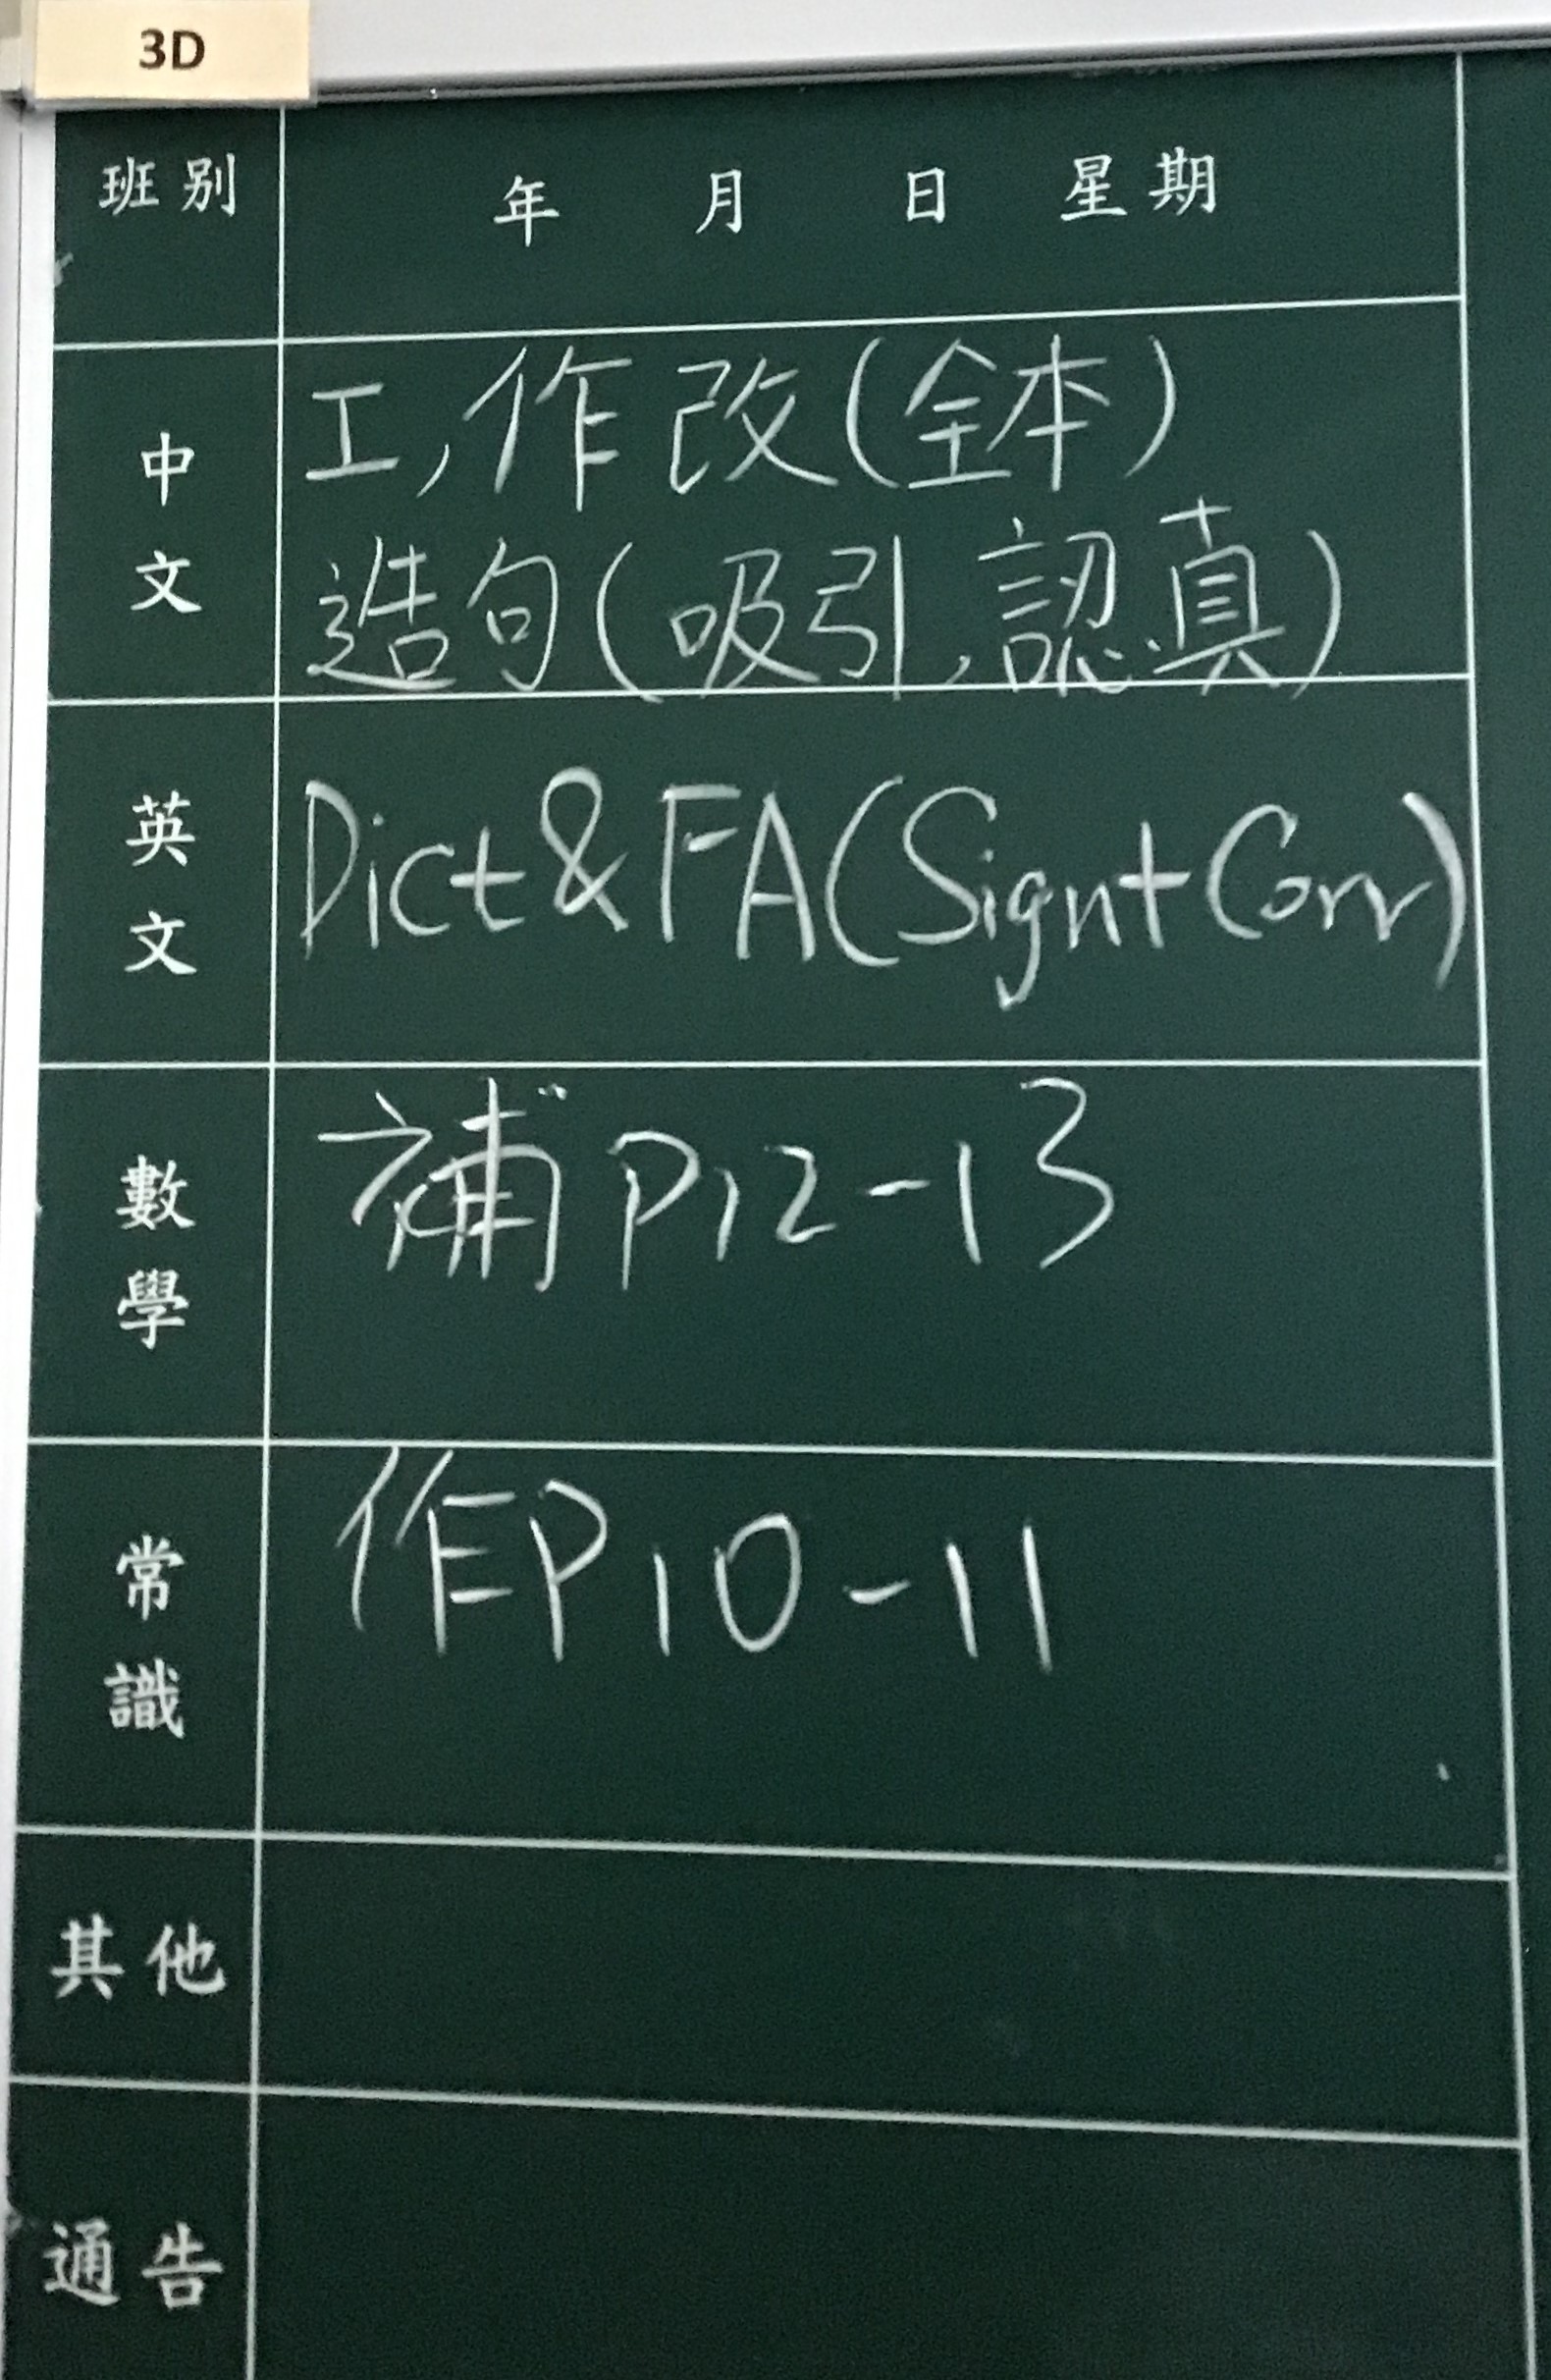 3D
班別 年 月 日 星期
中文
工,作改(全本)
造句(吸引,認真)
英文
Dict & FA (Sign + Corr)
數學
補 P12-13
常識
作P10-11
其他
通告